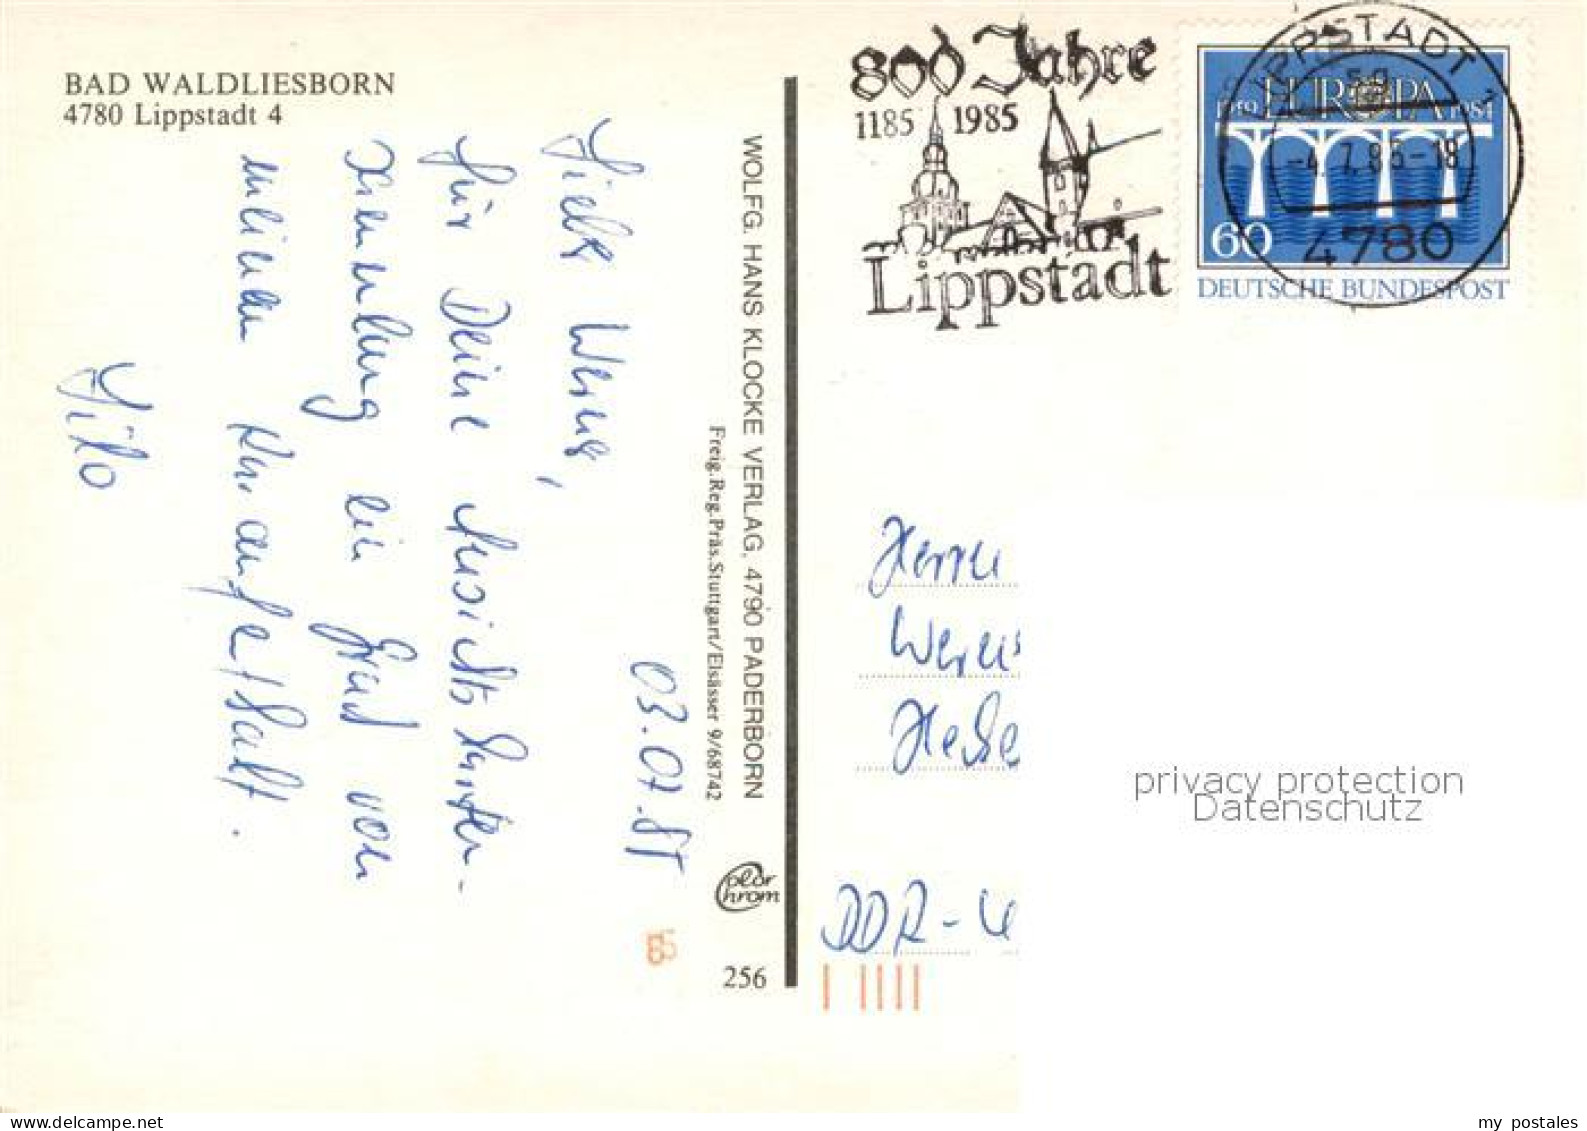 BAD WALDLIESBORN
4780 Lippstadt 4
800 Jahre
1185 1985
Lippstadt
LIPPSTADT
-4.7.85-18
4780
EUROPA
1984
60
DEUTSCHE BUNDESPOST
03.07.85
Werner,
für Deine Ansichtskarten-
ein Gruß von
meinem Kuraufenthalt.
WOLFG. HANS KLOCKE VERLAG, 4790 PADERBORN
Freig.Reg.Präs.Stuttgart/Elsässer 9/68742
Color Chrom
256
85
Herrn
Werner
DDR-
privacy protection
Datenschutz
my postales